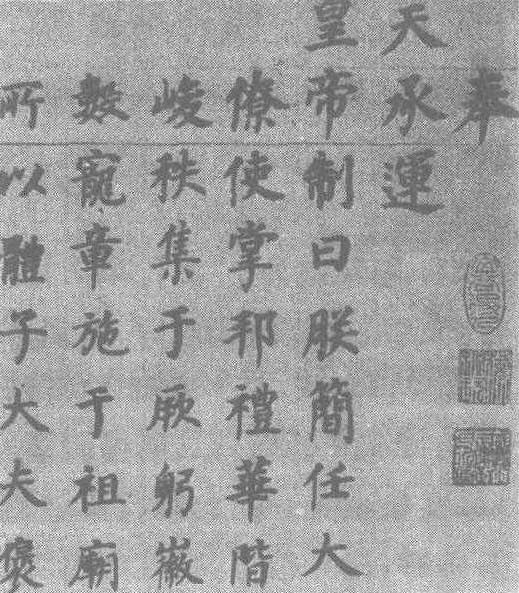 奉
天承運
皇帝制曰朕簡任大
僚使掌邦禮華階
峻秩集于厥躬徽
數寵章施于祖廟
所以體子大夫褒